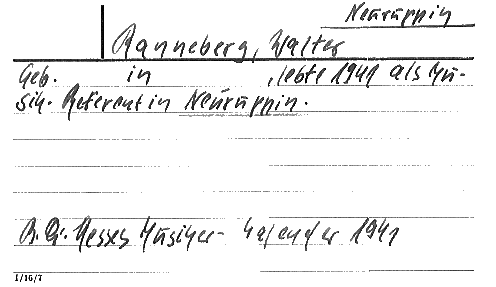 Neuruppin
Ranneberg, Walter
Geb. in , lebte 1941 als Mu-
sik-Referent in Neuruppin.
Hesses Musiker-Kalender 1941
I/16/7